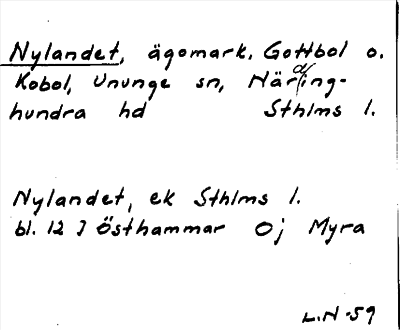 Nylandet, ägomark, Gottbol o.
Kobol, Ununge sn, Närding-
hundra hd Sthlms l.
Nylandet, ek Sthlms l.
bl. 12 J Östhammar Oj Myra
L.N -59